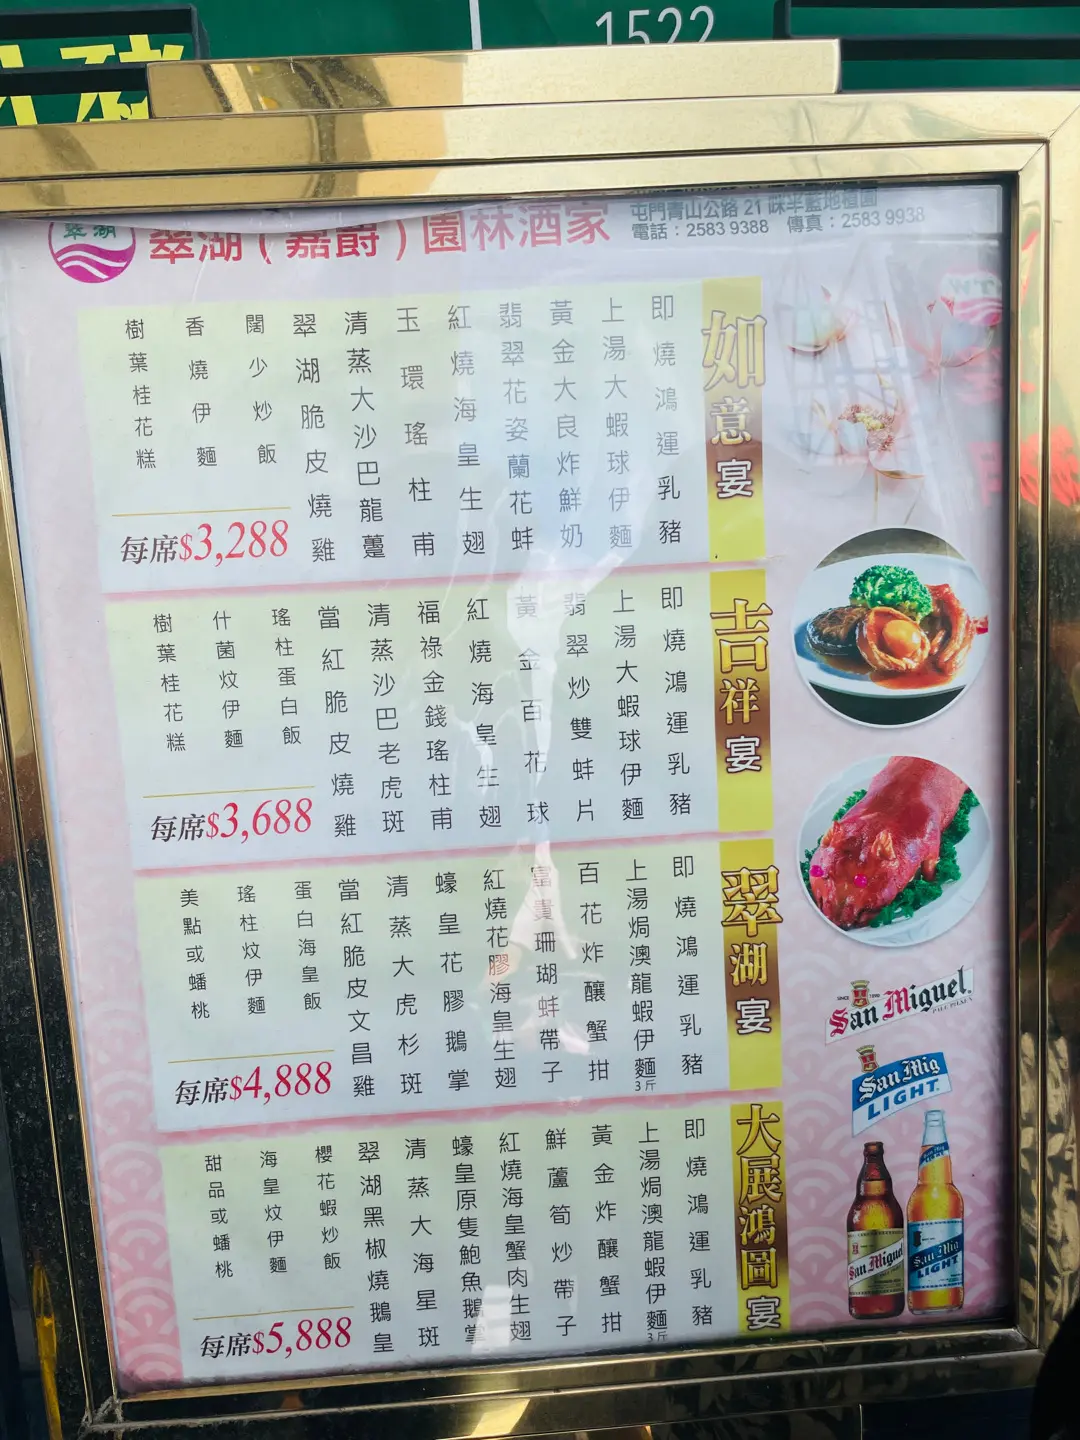 1522
翠湖
翠湖(嘉爵)園林酒家
屯門青山公路 21 咪半藍地檀園
電話:2583 9388 傳真:2583 9938
如意宴
即燒鴻運乳豬
上湯大蝦球伊麵
黃金大良炸鮮奶
翡翠花姿蘭花蚌
紅燒海皇生翅
玉環瑤柱甫
清蒸大沙巴龍躉
翠湖脆皮燒雞
闊少炒飯
香燒伊麵
樹葉桂花糕
每席$3,288
吉祥宴
即燒鴻運乳豬
上湯大蝦球伊麵
翡翠炒雙蚌片
黃金百花球
紅燒海皇生翅
福祿金錢瑤柱甫
清蒸沙巴老虎斑
當紅脆皮燒雞
瑤柱蛋白飯
什菌炆伊麵
樹葉桂花糕
每席$3,688
翠湖宴
即燒鴻運乳豬
上湯焗澳龍蝦伊麵3斤
百花炸釀蟹拑
富貴珊瑚蚌帶子
紅燒花膠海皇生翅
蠔皇花膠鵝掌
清蒸大虎杉斑
當紅脆皮文昌雞
蛋白海皇飯
瑤柱炆伊麵
美點或蟠桃
每席$4,888
大展鴻圖宴
即燒鴻運乳豬
上湯焗澳龍蝦伊麵3斤
黃金炸釀蟹拑
鮮蘆筍炒帶子
紅燒海皇蟹肉生翅
蠔皇原隻鮑魚鵝掌
清蒸大海星斑
翠湖黑椒燒鵝皇
櫻花蝦炒飯
海皇炆伊麵
甜品或蟠桃
每席$5,888
SINCE 1890
San Miguel
PALE PILSEN
San Mig
LIGHT
San Miguel
San Mig
LIGHT